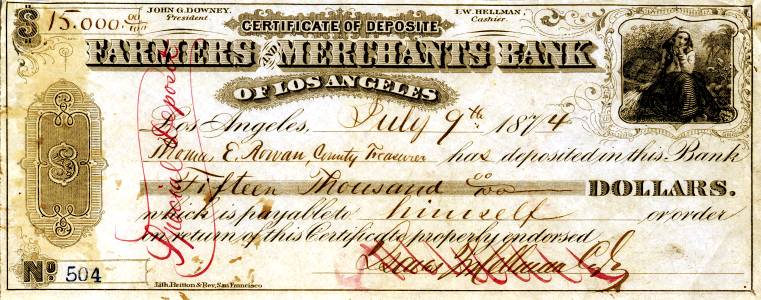 $15.000.00/100
JOHN G. DOWNEY.
President
CERTIFICATE OF DEPOSITE
I.W. HELLMAN,
Cashier.
FARMERS AND MERCHANTS BANK
OF LOS ANGELES
Special Deposit
Los Angeles, July 9th 1874
Thomas E. Rowan, County Treasurer has deposited in this Bank
Fifteen Thousand 00/00 DOLLARS.
which is payable to himself or order
on return of this Certificate properly endorsed
$
Isaias W Hellman
No. 504
Lith. Britton & Rey, San Francisco